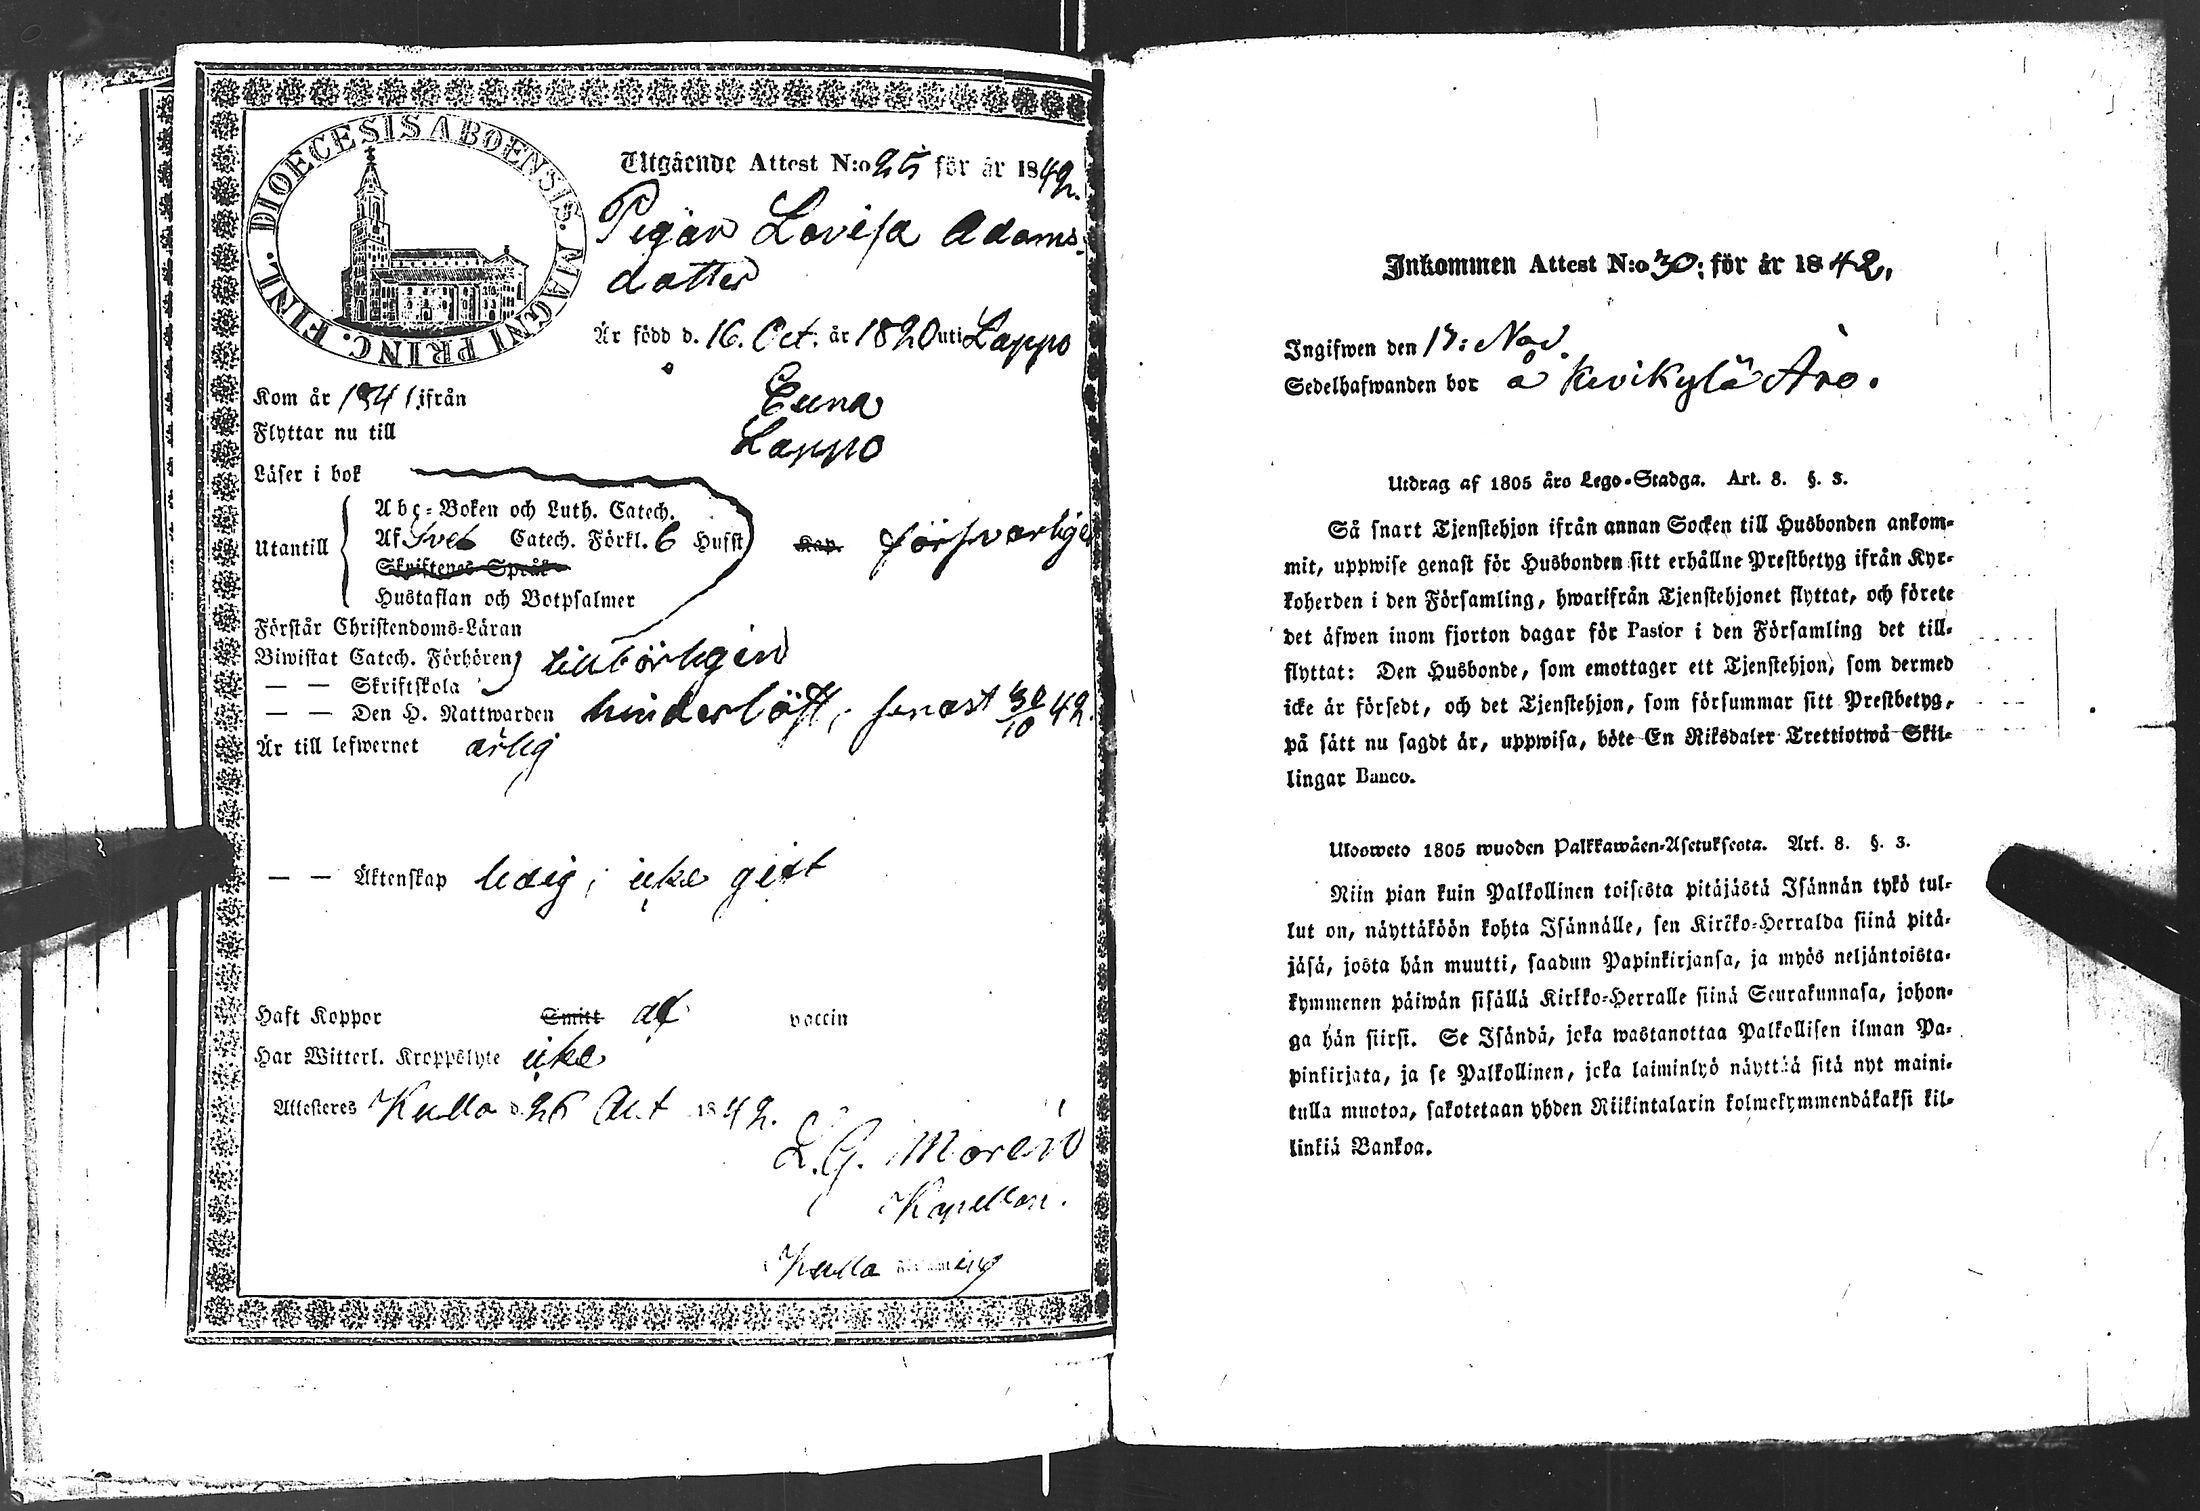 FINL. DIOECESIS ABOENSIS. MAGNI PRINC.
Utgående Attest N:o 25 för år 1842.
Pigan Lovisa Adams-
dotter
Är född d. 16. Oct. år 1820 uti Lappo
Kom år 1841 ifrån Eura
Flyttar nu till Lappo
Läser i bok
Utantill
Abc-Boken och Luth. Catech.
Af Sveb Catech. Förkl. 6 Husst Kap. försvarligen
Skriftenes Språk
Hustaflan och Botpsalmer
Förstår Christendoms-Läran
Biwistat Catech. Förhören tillbörligen
— — Skriftskola
— — Den H. Nattwarden hinderlöst; senast 30/10 42.
Är till lefwernet ärlig
— — Äktenskap ledig; icke gift
Haft Koppor Smitt af vaccin
Har Witterl. Kroppslyte icke
Attesteres Kulla d. 25 Oct 1842.
L. G. Morén
Kapellan.
Kulla
Inkommen Attest N:o 30: för år 1842.
Ingifwen den 13: Nov.
Sedelhafwanden bor å Kevikylä Aro.
Utdrag af 1805 års Lego-Stadga. Art. 8. §. 3.
Så snart Tjenstehjon ifrån annan Socken till Husbonden ankom-
mit, uppwise genast för Husbonden sitt erhållne Prestbetyg ifrån Kyr-
koherden i den Församling, hwarifrån Tjenstehjonet flyttat, och förete
det äfwen inom fjorton dagar för Pastor i den Församling det till-
flyttat: Den Husbonde, som emottager ett Tjenstehjon, som dermed
icke är försedt, och det Tjenstehjon, som försummar sitt Prestbetyg,
på sätt nu sagdt är, uppwisa, böte En Riksdaler Trettiotwå Skil-
lingar Banco.
Ulosweto 1805 wuoden Palkkawäen-Asetuksesta. Art. 8. §. 3.
Niin pian kuin Palkollinen toisesta pitäjästä Isännän tykö tul-
lut on, näyttäköön kohta Isännälle, sen Kirkko-Herralda siinä pitä-
jäsä, josta hän muutti, saadun Papinkirjansa, ja myös neljäntoista-
kymmenen päiwän sisällä Kirkko-Herralle siinä Seurakunnasa, johon-
ga hän siirsi. Se Isändä, joka wastanottaa Palkollisen ilman Pa-
pinkirjata, ja se Palkollinen, joka laiminlyö näyttää sitä nyt maini-
tulla muotoa, sakotetaan yhden Riikintalarin kolmekymmendäkaksi kil-
linkiä Bankoa.